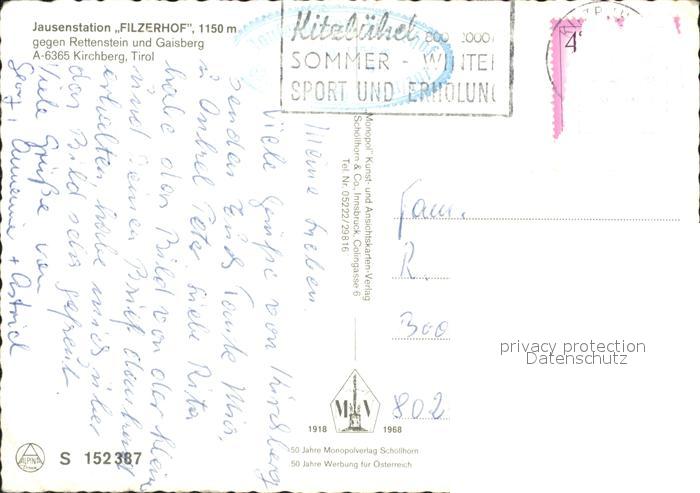 Jausenstation „FILZERHOF", 1150 m
gegen Rettenstein und Gaisberg
A-6365 Kirchberg, Tirol
Kitzbühel 800 - 2000
SOMMER - WINTE
SPORT UND ERHOLUNG
4
Meine Lieben.
Viele Grüße von Kirchberg
senden Euch Tante Mia,
u Onkel Peter. Liebe Rita
habe das Bild von der Klein
und Deinen Brief dankend
erhalten, habe mich über
das Bild sehr gefreut.
Viele Grüße von
+ Astrid
„Monopol" Kunst- und Ansichtskarten-Verlag
Schöllhorn & Co., Innsbruck, Colingasse 6
Tel. Nr. 05222/29816
Fam.
R.
802
privacy protection
Datenschutz
M V
1918 1968
50 Jahre Monopolverlag Schöllhorn
50 Jahre Werbung für Österreich
ALPINA
S 152387